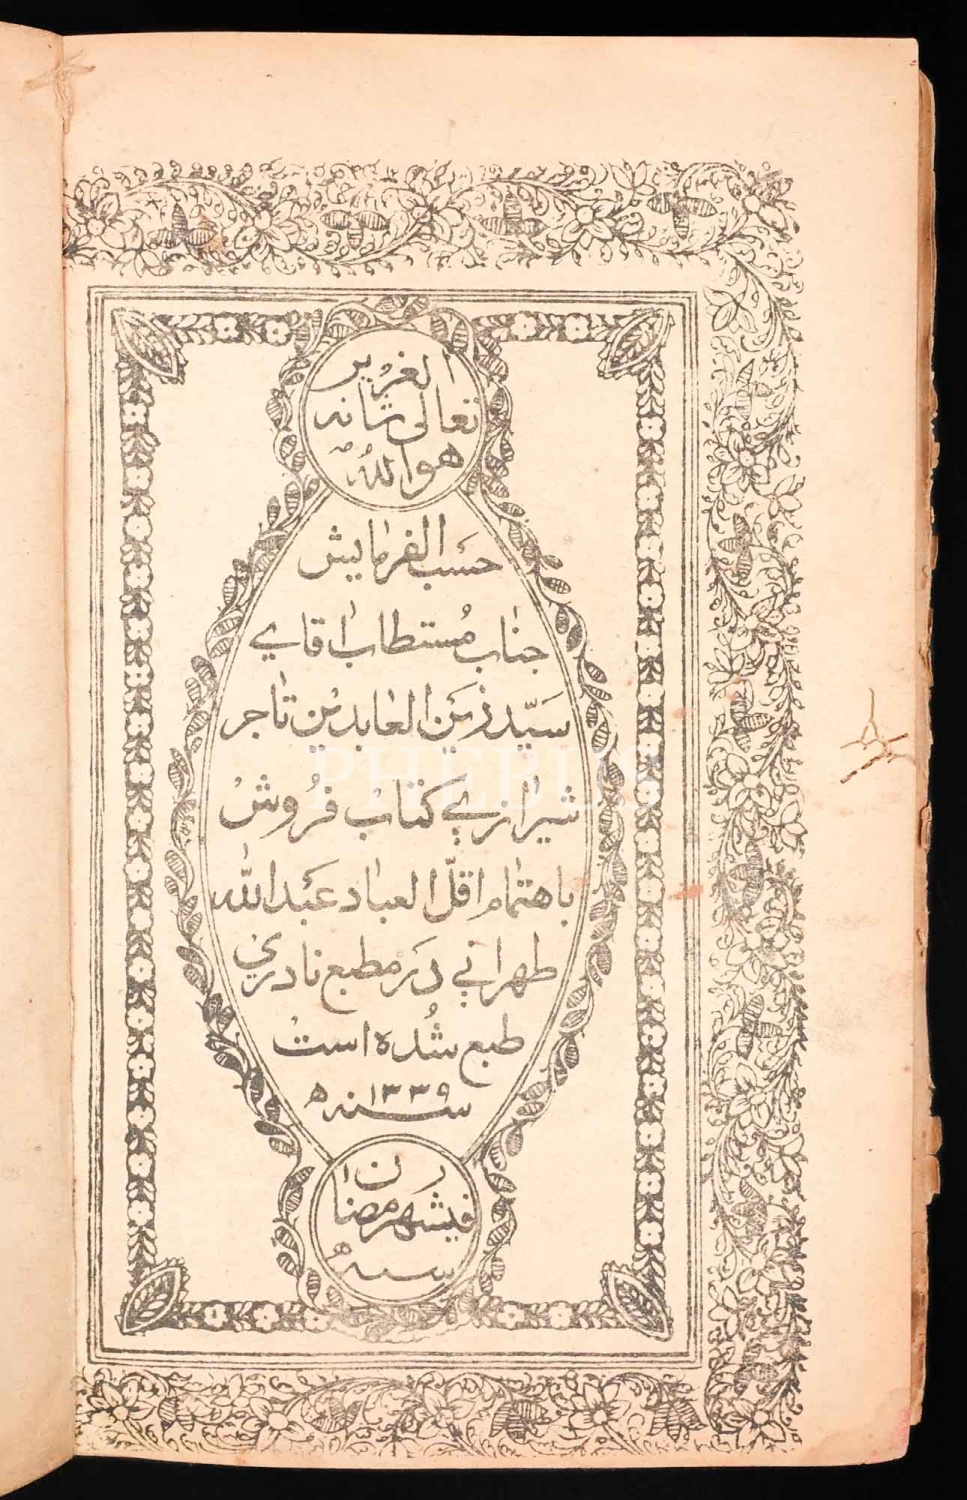 العزیز
تعالی شانه
هوالله
حسب الفرمایش
جناب مستطاب اقاي
سیّد زین العابدین تاجر
شیرازي کتاب فروش
باهتمام اقلّ العباد عبدالله
طهراني در مطبع نادري
طبع شده است
سنه ۱۳۳۹ ه
فیشهر رمضان
سنه
PHEBUS